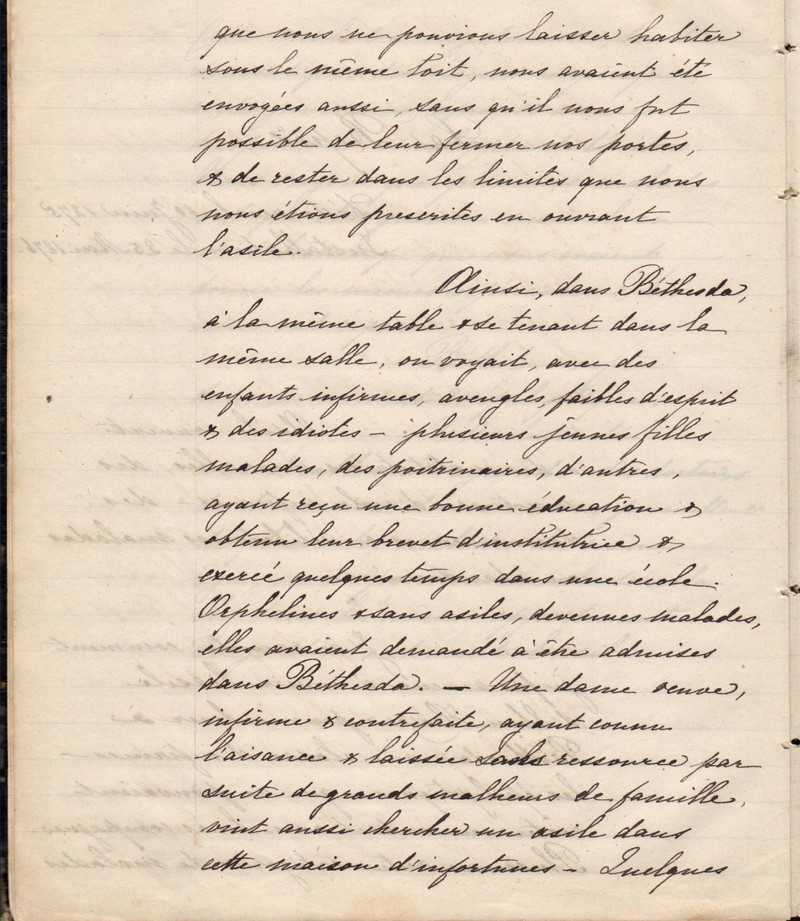 que nous ne pouvions laisser habiter
sous le même toit, nous avaient été
envoyées aussi, sans qu'il nous fut
possible de leur fermer nos portes,
& de rester dans les limites que nous
nous étions prescrites en ouvrant
l'asile.
Ainsi, dans Béthesda,
à la même table & se tenant dans la
même salle, on voyait, avec des
enfants infirmes, aveugles, faibles d'esprit
& des idiotes - plusieurs jeunes filles
malades, des poitrinaires, d'autres,
ayant reçu une bonne éducation &
obtenu leur brevet d'institutrice &
exercé quelques temps dans une école.
Orphelines & sans asiles, devenues malades,
elles avaient demandé à être admises
dans Béthesda. — Une dame veuve,
infirme & contrefaite, ayant connu
l'aisance & laissée sans ressource par
suite de grands malheurs de famille,
vint aussi chercher un asile dans
cette maison d'infortunes - Quelques